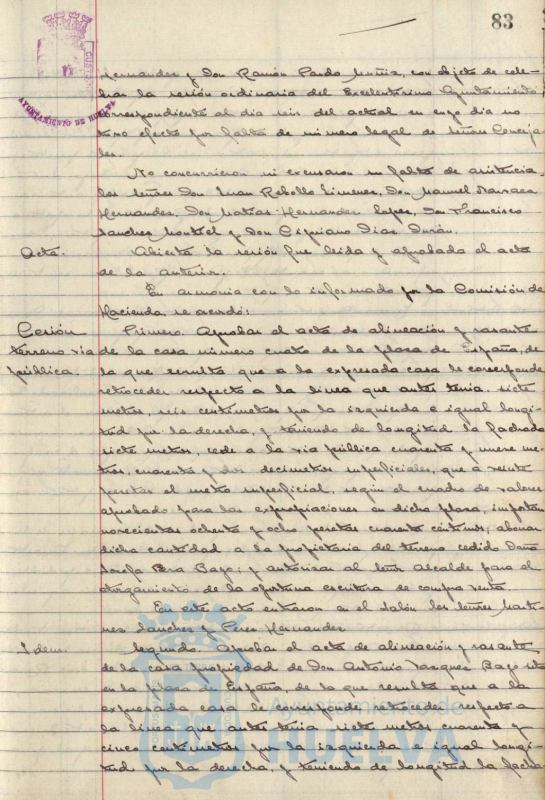 83
AYUNTAMIENTO DE HUELVA
Hernandez y Don Ramón Pardo Muñiz, con objeto de cele-
brar la sesión ordinaria del Excelentísimo Ayuntamiento
correspondiente al dia seis del actual en cuyo dia no
tuvo efecto por falta de número legal de señores Conceja-
les.
No concurrieron ni excusaron su falta de asistencia
los señores Don Juan Rebollo Jimenez, Don Manuel
Hernandez, Don Matias Hernandez Lopez, Don Francisco
Sanchez y Don Cipriano Diaz Durán.
Acta.
Abierta la sesión fue leida y aprobada el acta
de la anterior.
En armonia con lo informado por la Comisión de
Hacienda, se acordó:
Cesión
terreno via
pública.
Primero. Aprobar el acta de alineación y rasante
de la casa número cuatro de la plaza de España, de
la que resulta que a la expresada casa le corresponde
retroceder respecto a la linea que antes tenia, siete
metros, seis centimetros por la izquierda e igual longi-
tud por la derecha, y teniendo de longitud la fachada
siete metros, cede a la via pública cuarenta y nueve me-
tros, cuarenta y dos decimetros superficiales, que a veinte
pesetas el metro superficial, según el cuadro de valores
aprobado para las expropiaciones en dicha plaza, importan
novecientas ochenta y ocho pesetas cuarenta centimos; abonar
dicha cantidad a la propietaria del terreno cedido Doña
Josefa Bayo; y autorizar al señor Alcalde para el
otorgamiento de la oportuna escritura de compra venta
En este acto entraron en el salón los señores Marti-
nez Sanchez y Perez Hernandez
Idem.
Segundo. Aprobar el acta de alineación y rasante
de la casa propiedad de Don Antonio Vazquez Bayo sita
en la plaza de España, de la que resulta que a la
expresada casa le corresponde retroceder respecto a
la linea que antes tenia siete metros cuarenta y
cinco centimetros por la izquierda e igual longi-
tud por la derecha, y teniendo de longitud la facha-
Ayuntamiento de
HUELVA